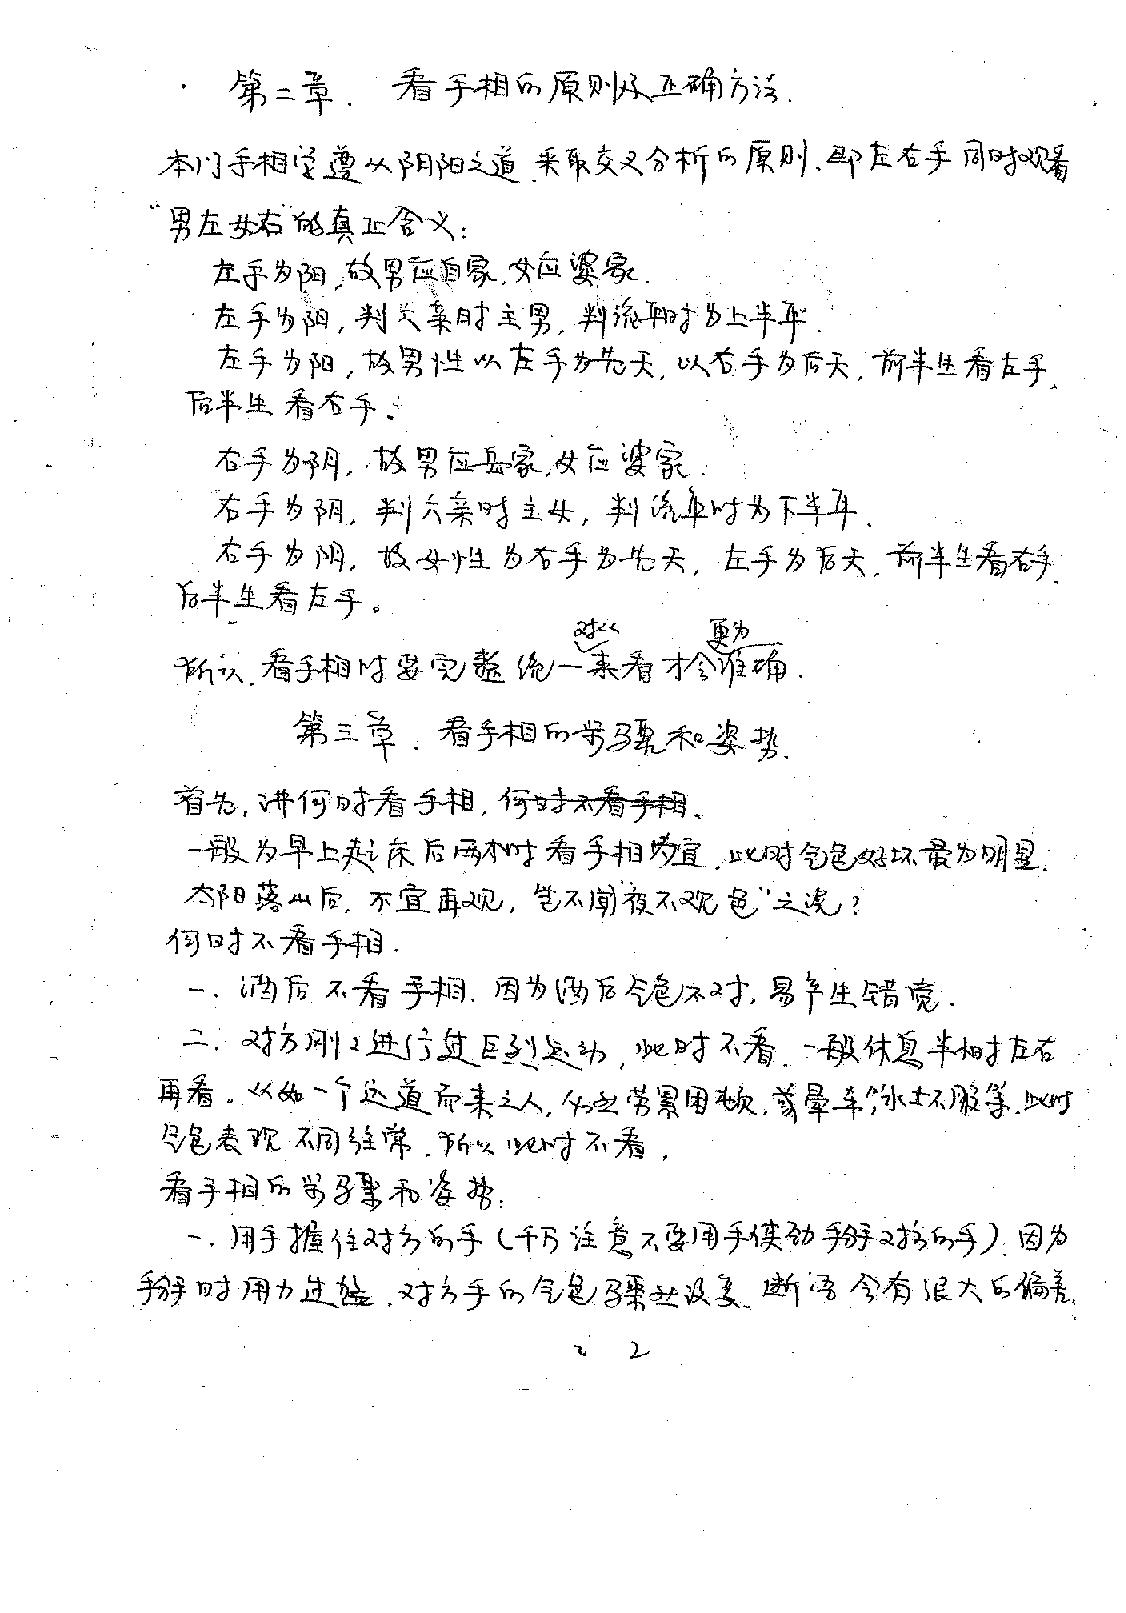 第二章. 看手相的原则及正确方法.
本门手相学遵从阴阳之道.采取交叉分析的原则.即左右手同时观看
“男左女右”的真正含义:
左手为阳,故男应自家.女应婆家.
左手为阳,判六亲时主男,判流年时为上半年.
左手为阳,故男性以左手为先天.以右手为后天.前半生看左手.
后半生看右手.
右手为阴.故男应岳家.女应婆家.
右手为阴,判六亲时主女,判流年时为下半年.
右手为阴,故女性为右手为先天,左手为后天.前半生看右手.
后半生看左手。
对比 更为
所以.看手相时要完整统一来看才会准确.
第三章.看手相的步骤和姿势.
首先,讲何时看手相.何时不看手相.
一般为早上起床后两小时看手相为宜.此时气色好坏最为明显.
太阳落山后.不宜再观,岂不闻“夜不观色”之说?
何时不看手相.
一.酒后不看手相.因为酒后气色不对,易产生错觉.
二.对方刚刚进行过巨烈运动,此时不看.一般休息半小时左右
再看。从如一个远道而来之人,必定劳累困顿,或晕车,水土不服等.此时
气色表现不同往常.所以此时不看.
看手相的步骤和姿势:
一.用手握住对方的手(千万注意不要用手使劲掰对方的手).因为
掰时用力过猛.对方手的气色骤然改变.断语会有很大的偏差.
2 2